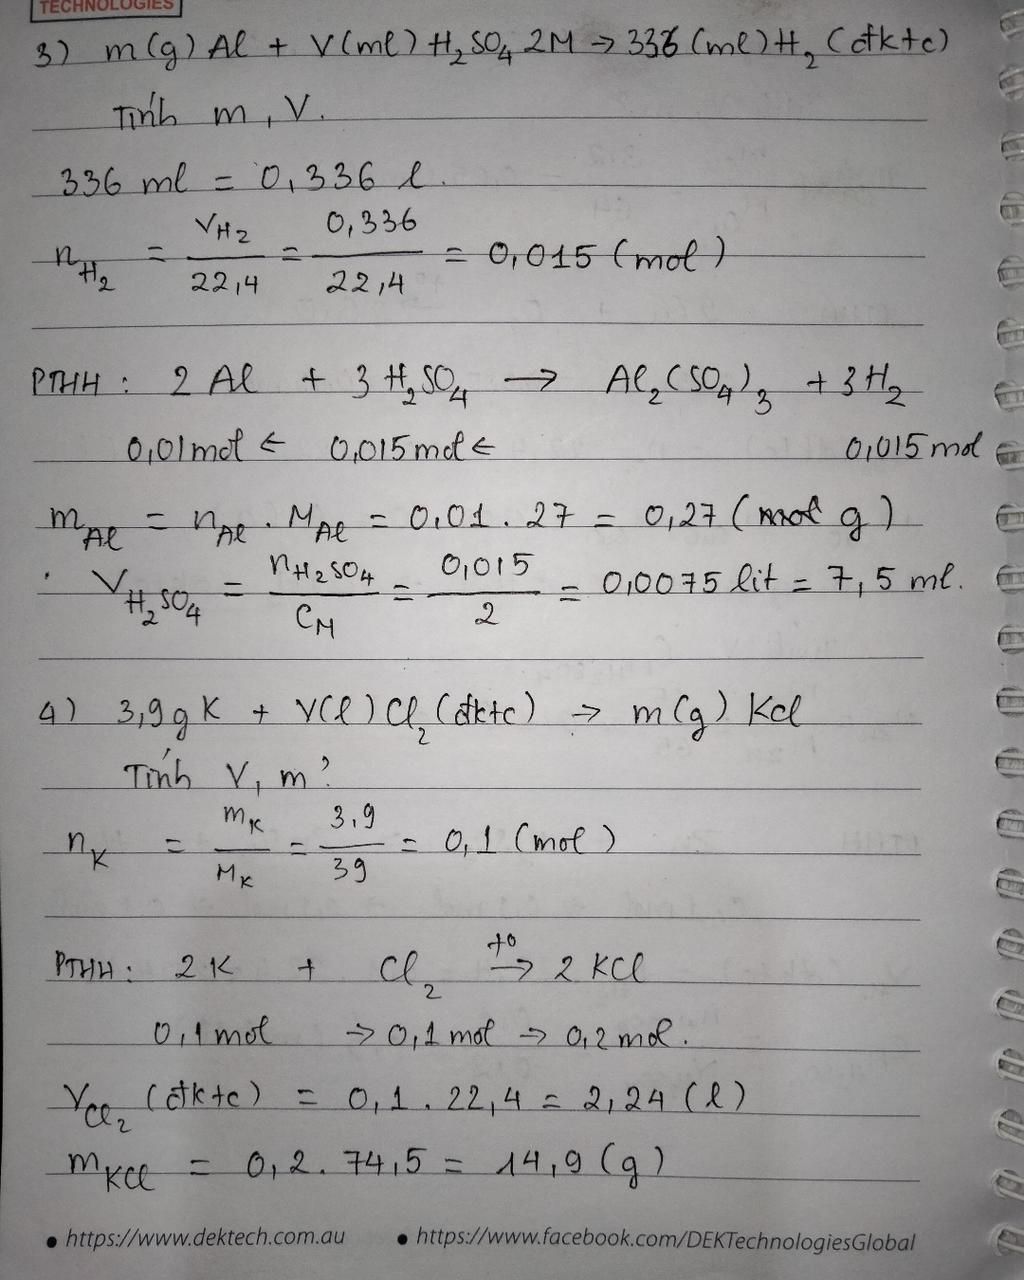 TECHNOLOGIES
3) m(g) Al + V(ml) H₂SO₄ 2M → 336 (ml) H₂ (đktc)
Tính m, V.
336 ml = 0,336 l.
n_H₂ = V_H₂/22,4 = 0,336/22,4 = 0,015 (mol)
PTHH : 2 Al + 3 H₂SO₄ → Al₂(SO₄)₃ + 3H₂
0,01 mol ← 0,015 mol ← 0,015 mol
m_Al = n_Al . M_Al = 0,01 . 27 = 0,27 (mol g)
V_H₂SO₄ = n_H₂SO₄/C_M = 0,015/2 = 0,0075 lit = 7,5 ml.
4) 3,9g K + V(l) Cl₂ (đktc) → m(g) KCl
Tính V, m?
n_K = m_K/M_K = 3,9/39 = 0,1 (mol)
PTHH : 2K + Cl₂ t⁰→ 2 KCl
0,1 mol → 0,1 mol → 0,2 mol.
V_Cl₂ (đktc) = 0,1 . 22,4 = 2,24 (l)
m_KCl = 0,2 . 74,5 = 14,9 (g)
• https://www.dektech.com.au • https://www.facebook.com/DEKTechnologiesGlobal